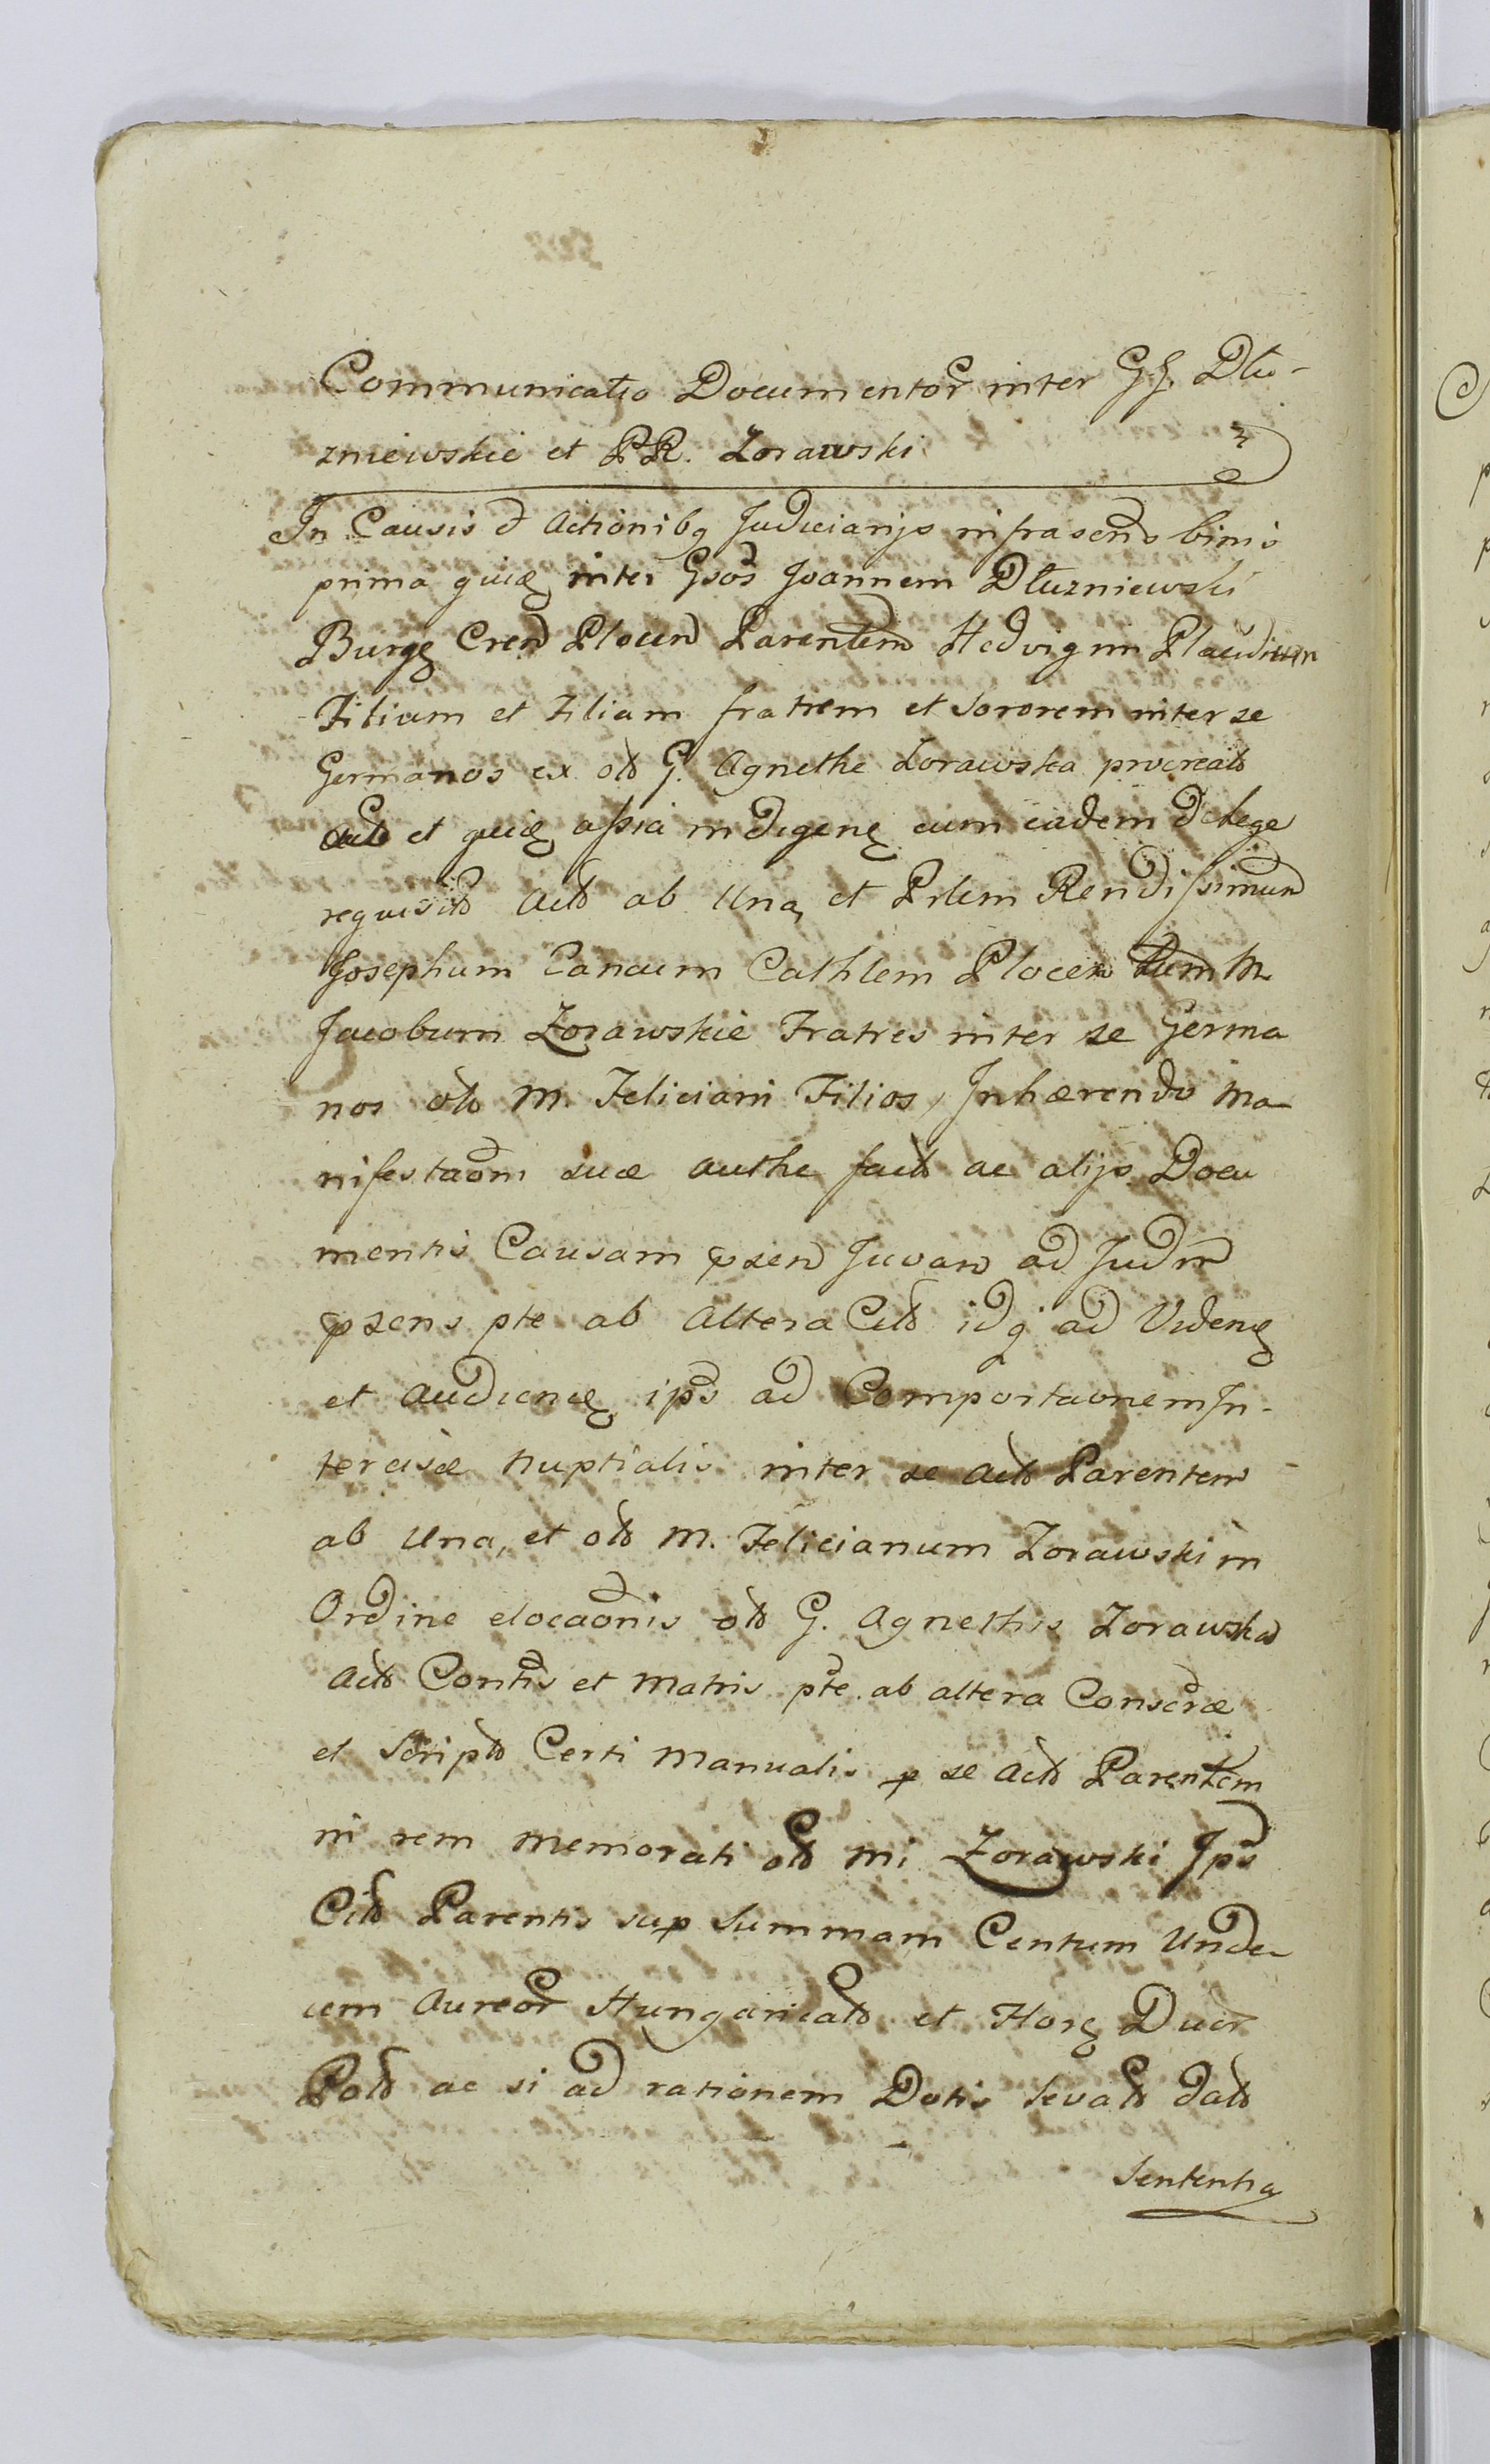 Communicatio Documentor inter GG. Dłu-
zniewskie et PR. Zorawski
In Causis & Actionibq Judiciarijs infrascrñs binis
prima quid inter Gsos Joannem Dłuzniewski
Burg Cren Plocen Parentem Hedvigim Plaudinum
Filium et Filiam fratrem et Sororem inter se
Germanos ex olt G. Agnethe Zorawska procreat
et quid indigen cum eadem de lege
requisit Act ab Una, et Prlem Rendissimum
Josephum Cancum Cathlem Plocen
Jacobum Zorawskie Fratres inter se Germa
nos olt M. Feliciani Filios, Inhærendo Ma
nifestaoni suæ authe fact ac alijs Docu
mentis Causam psen Juvan ad Judm
psens pte ab Altera Cit idq ad Videnđ
et Audienđ ips ad Comportaonem In-
tercisæ Nuptialis inter se Act Parentem
ab Una, et olt M. Felicianum Zorawski in
Ordine elocaonis olt G. Agnethis Zorawska
Act Contis et Matris pte ab altera Conscræ
et Script Certi Manualis p se Act Parentem
in rem memorati olt Mi Zorawski Ips
Cit Parentis sup Summam Centum Unde-
cim Aureor Hungaricat et Flor Duor
Polt ac si ad rationem Dotis levat dat
Sententia